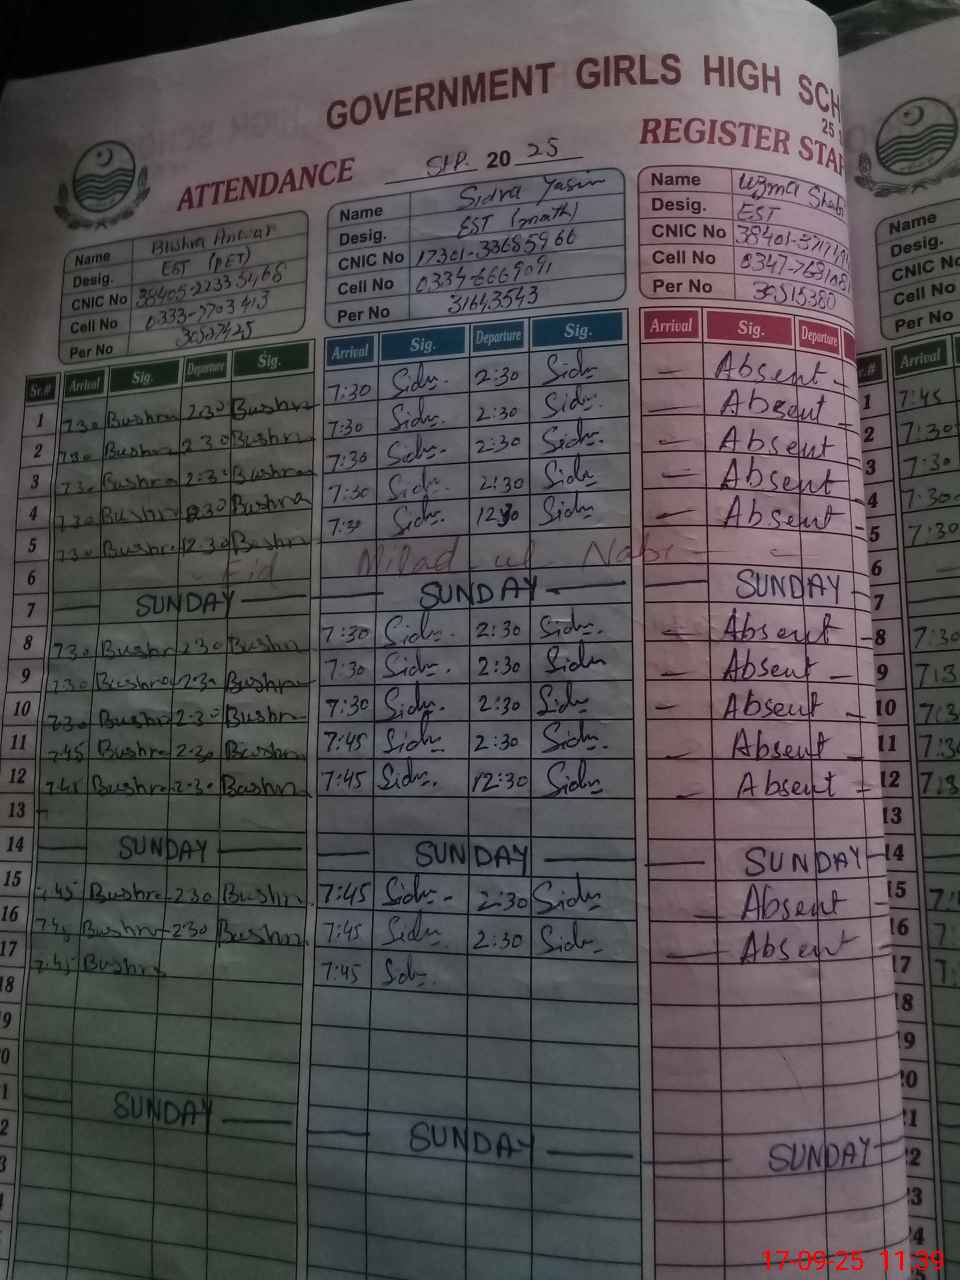 GOVERNMENT GIRLS HIGH SCH
25
ATTENDANCE SEP. 20 25 REGISTER STAF
Name Bushra Anwar
Desig. EST (PET)
CNIC No 38405-22335468
Cell No 0333-7703413
Per No 30507425
Name Sidra Yasin
Desig. EST (math)
CNIC No 17301-33685966
Cell No 0334-6669091
Per No 31643543
Name Uzma
Desig. EST
CNIC No
Cell No
Per No 30515380
Name
Desig.
CNIC No
Cell No
Per No
Sr.# Arrival Sig. Departure Sig. Arrival Sig. Departure Sig. Arrival Sig. Departure Arrival
1 7:30 Bushra 2:30 Bushra 7:30 Sidra 2:30 Sidra — Absent — 1 7:45
2 7:30 Bushra 2:30 Bushra 7:30 Sidra 2:30 Sidra — Absent — 2 7:30
3 7:30 Bushra 2:30 Bushra 7:30 Sidra 2:30 Sidra — Absent 3 7:30
4 7:30 Bushra 2:30 Bushra 7:30 Sidra 2:30 Sidra — Absent — 4 7:30
5 7:30 Bushra 12:30 Bushra 7:30 Sidra 12:30 Sidra — Absent — 5 7:30
6 Eid Milad ul Nabi 6
7 SUNDAY SUNDAY SUNDAY 7
8 7:30 Bushra 2:30 Bushra 7:30 Sidra 2:30 Sidra — Absent — 8 7:30
9 7:30 Bushra 2:30 Bushra 7:30 Sidra 2:30 Sidra — Absent — 9 7:3
10 7:30 Bushra 2:30 Bushra 7:30 Sidra 2:30 Sidra — Absent — 10 7:3
11 7:45 Bushra 2:30 Bushra 7:45 Sidra 2:30 Sidra — Absent — 11 7:3
12 7:45 Bushra 2:30 Bushra 7:45 Sidra 12:30 Sidra — Absent — 12 7:3
13 13
14 SUNDAY SUNDAY SUNDAY 14
15 7:45 Bushra 2:30 Bushra 7:45 Sidra 2:30 Sidra — Absent 15
16 7:45 Bushra 2:30 Bushra 7:45 Sidra 2:30 Sidra — Absent 16
17 7:45 Bushra 7:45 Sidra 17
18 18
9 19
0 20
1 SUNDAY SUNDAY SUNDAY 21
2 22
3 23
24
17-09-25 11:39